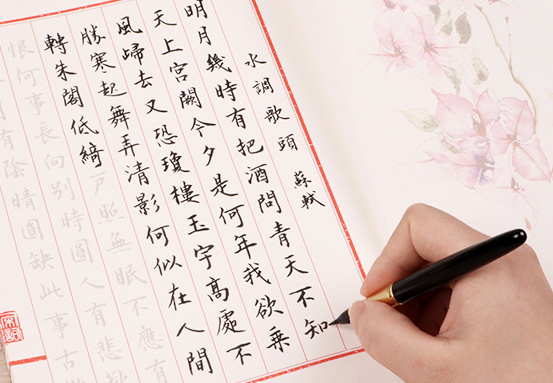 水調歌頭 蘇軾
明月幾時有把酒問青天不知
天上宮闕今夕是何年我欲乘
風歸去又恐瓊樓玉宇高處不
勝寒起舞弄清影何似在人間
轉朱閣低綺戶照無眠不應有
恨何事長向別時圓人有悲歡
有陰晴圓缺此事古